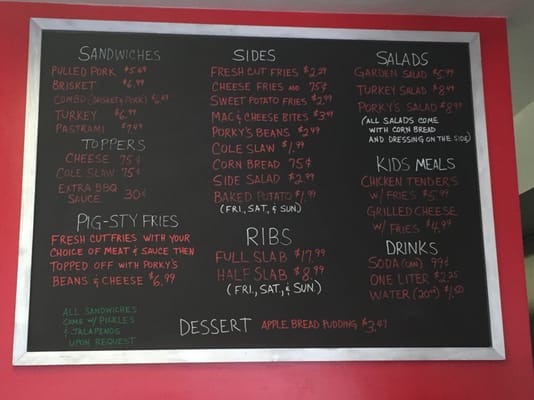 SANDWICHES
PULLED PORK $5.69
BRISKET $6.99
COMBO (BRISKET & PORK) $6.49
TURKEY $6.99
PASTRAMI $7.49
TOPPERS
CHEESE 75¢
COLE SLAW 75¢
EXTRA BBQ
SAUCE 30¢
PIG-STY FRIES
FRESH CUT FRIES WITH YOUR
CHOICE OF MEAT & SAUCE THEN
TOPPED OFF WITH PORKY'S
BEANS & CHEESE $6.99
ALL SANDWICHES
COME W/ PICKLES
& JALAPENOS
UPON REQUEST
SIDES
FRESH CUT FRIES $2.29
CHEESE FRIES ADD 75¢
SWEET POTATO FRIES $2.99
MAC & CHEESE BITES $3.49
PORKY'S BEANS $2.49
COLE SLAW $1.99
CORN BREAD 75¢
SIDE SALAD $2.99
BAKED POTATO $1.99
(FRI, SAT, & SUN)
RIBS
FULL SLAB $17.99
HALF SLAB $8.99
(FRI, SAT, & SUN)
SALADS
GARDEN SALAD $5.99
TURKEY SALAD $8.49
PORKY'S SALAD $8.99
(ALL SALADS COME
WITH CORN BREAD
AND DRESSING ON THE SIDE)
KIDS MEALS
CHICKEN TENDERS
W/ FRIES $5.99
GRILLED CHEESE
W/ FRIES $4.99
DRINKS
SODA (CAN) 99¢
ONE LITER $2.25
WATER (20oz) $1.50
DESSERT APPLE BREAD PUDDING $3.49